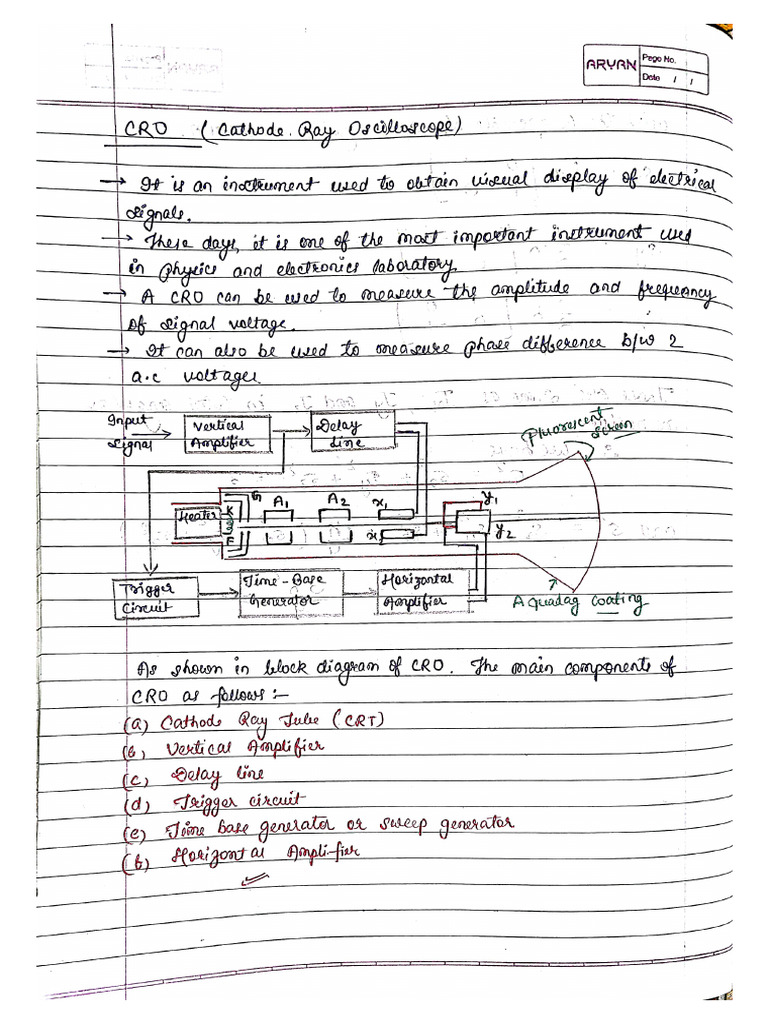 ARYAN
Page No.
Date / /
CRO (Cathode Ray Oscilloscope)
→ It is an instrument used to obtain visual display of electrical
signals.
→ These days, it is one of the most important instrument used
in physics and electronics laboratory.
→ A CRO can be used to measure the amplitude and frequency
of signal voltage.
→ It can also be used to measure phase difference b/w 2
a.c voltages.
Input
signal
Vertical
Amplifier
Delay
Line
Fluorescent
screen
Heater
K
F
G
A1
A2
x1
x2
y1
y2
Trigger
Circuit
Time-Base
Generator
Horizontal
Amplifier
Aquadag Coating
As shown in block diagram of CRO. The main components of
CRO as follows:-
(a) Cathode Ray Tube (CRT)
(b) Vertical Amplifier
(c) Delay line
(d) Trigger circuit
(e) Time base generator or sweep generator
(b) Horizontal Amplifier